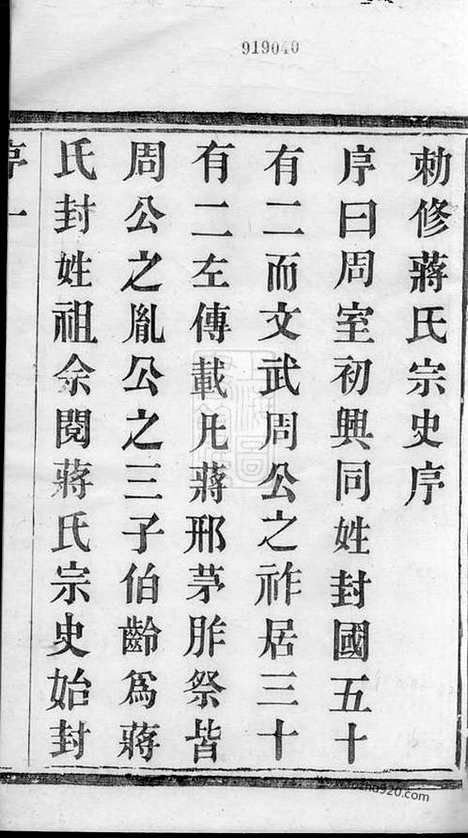 919040
勅修蔣氏宗史序
序曰周室初興同姓封國五十
有二而文武周公之祚居三十
有二左傳載凡蔣邢茅胙祭皆
周公之胤公之三子伯齡爲蔣
氏封姓祖余閱蔣氏宗史始封
序一